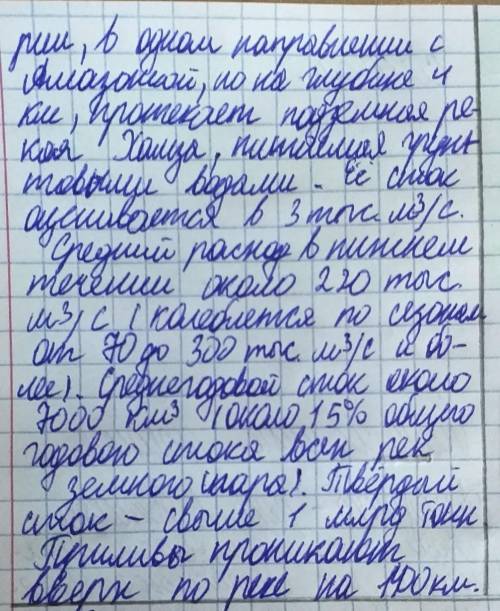 рии, в одном направлении с
Амазонкой, но на глубине 4
км, протекает подземная ре-
кая Хамза, питаемая грун-
товыми водами. Её сток
оценивается в 3 тыс. м3/с.
Средний расход в нижнем
течении около 220 тыс.
м3/с (колеблется по сезонам
от 70 до 300 тыс. м3/с и бо-
лее). Среднегодовой сток около
7000 км3 (около 15% общего
годового стока всех рек
земного шара). Твёрдый
сток – свыше 1 млрд тонн
Приливы проникают
вверх по реке на 1400км.